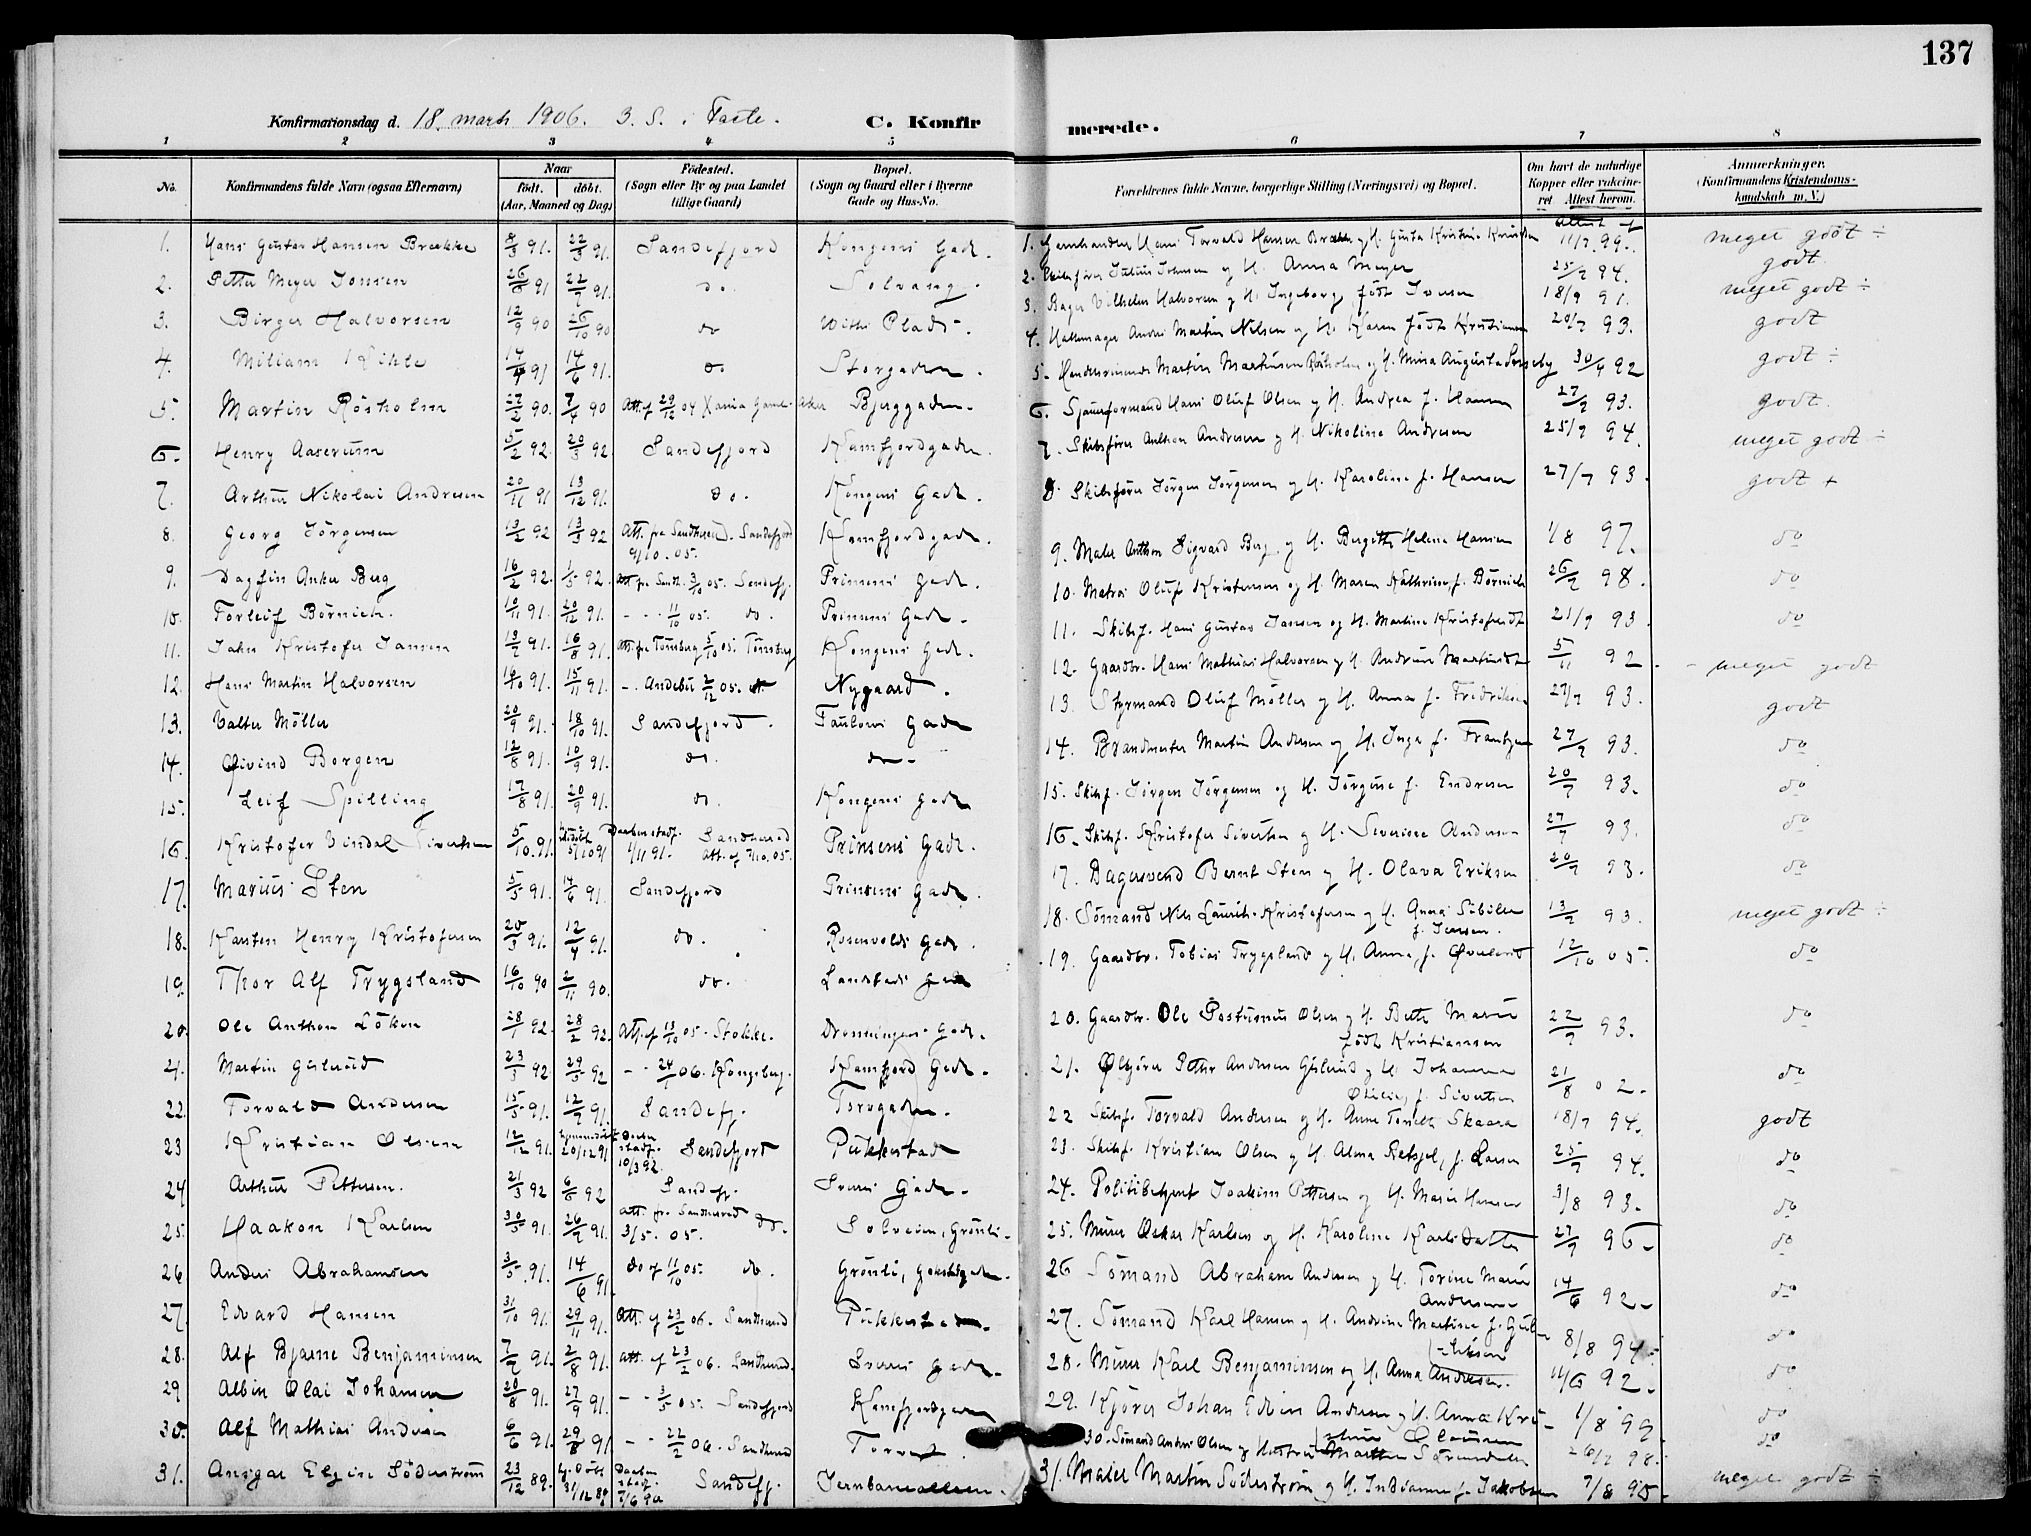 137
Konfirmationsdag d. 18. marts 1906. 3. S. i Faste. C. Konfirmerede.
1 2 3 4 5 6 7 8
No. Konfirmandens fulde Navn (ogsaa Efternavn) Naar født. døbt. (Aar, Maaned og Dag) Födested. (Sogn eller By og paa Landet tillige Gaard) Bopæl. (Sogn og Gaard eller i Byerne Gade og Hus-No. Forældrenes fulde Navne, borgerlige Stilling (Næringsvei) og Bopæl. Om havt de naturlige Kopper eller vakcineret. Attest herom. Anmærkninger. (Konfirmandens Kristendomskundskab m. V.)
1. Hans Gustav Hansen Brække 8/3 91. 22/3 91. Sandefjord Kongens Gade.
2. Petter Meyer Jonsen 26/6 91 22/7 91. do. Solvang.
3. Birger Halvorsen 12/9 90 26/10 90 do Plads.
4. William Kihle 14/4 91 14/6 91. do. Storgaden.
5. Martin Rösholm 27/2 90. 7/4 90 Att. af 29/12 04 Xania Gamle-Aker Bjerggaden.
6. Henry Aaserum 5/2 92. 20/3 92. Sandefjord Kamfjordgaden.
7. Arthur Nikolai Andresen 20/11 91 13/12 91. do. Kongens Gade.
8. Georg Jörgensen 13/2 92 13/3 92 Att. fra Sandherred. Sandefjord 9/10.05. Kamfjordgade.
9. Dagfin Anker Berg 16/2 92. 1/5 92. Att fra Sandh. 3/10 05. Sandefj. Prinsens Gade.
10. Torleif Börnick. 10/11 91. 20/12 91. - - 11/10 05. do. Prinsens Gade.
11. John Kristofer Jansen 13/7 91. 16/8 91. Att. fra Tönsberg 5/10 05. Tönsberg Kongens Gade.
12. Hans Martin Halvorsen 14/10 91. 15/11 91. -. Andebu 2/12 05. do. Nygaard.
13. Valter Möller 20/9 91. 18/10 91. Sandefjord. Gade
14. Øivind Borgen 12/8 91. 10/9 91. do. do-
15. Leif Spilling 17/8 91. 20/9 91. do. Kongens Gade
16. Kristofer Vindal Sivertsen 5/10.91. 5/10 91 Daaben stadf. 1/11 91. Sandherred Att. af 7/10.05. Prinsens Gade.
17. Marius Sten 5/5 91. 14/6 91. Sandefjord Prinsens Gade.
18. Karsten Henry Kristofersen 25/3 91. 12/4 91. do. Rosenvolds Gade.
19. Thor Alf Trygsland 16/10 90 2/11 90. do. Landstads Gade
20. Ole Anthon Löken 28/1 92. 28/2 92. Att. af 13/10 05. Stokke. Dronningens Gade.
21. Martin Gislerud 23/3 92 29/5 92 - - 24/1 06. Kongsberg. Kamfjord Gade.
22. Torvald Andersen 15/5 91. 12/7 91. Sandefj. Torvgaden.
23 Kristian Olsen 12/12 91. hjemmedøbt 20/12 91 Daaben stadf. 10/3 92. Sandefjord Pukkestad
24 Arthur Pettersen. 21/3 92 6/6 92 Sandefj. Gade.
25. Haakon Karlsen 30/5 91. 26/7 91. att. fra Sandherred do. 3/5. 05. Solveien, Grönli.
26 Anders Abrahamsen 3/5 91. 14/6 91. do af 11/10 05. do. Grönli,
27. Edvard Hansen 31/10 91. 29/11 91. Att. af 23/2 06. Sandherred Pukkestad.
28. Alf Bjarne Benjaminsen 7/7 91. 2/8 91. att. af 23/2 06. Sandherred. Gade.
29 Albin Olai Johansen 20/8 91. 27/9 91. - - 3/5 05. Sandefjord Kamfjordgaden
30. Alf Mathias Andersen 6/6 91. 29/8 91. - - 22/2 06. Sandherred Torvet.
31. Ansgar Elgin Söderström 23/12 89. hj. döbt 31/12 89 Daaben stadf. 7/6 90 Sandefj. Jernbanealleen.
1. Hans Torvald Hansen Brække og H. Gusta Kristine Knudsen attest af 11/7 99. meget godt ÷
2. Skibsfører Julius Johnsen og H. Anna Meyer 25/7 94. godt.
3. Bager Vilhelm Halvorsen og H. Ingeborg, født Iversen 18/9 91. meget godt ÷
4. Martin Nilsen og H. Karen født Kristiansen 20/7 93. godt
5. Martin Martinsen Rösholm og H. Mina Augusta 30/4 92 godt ÷
6. Hans Oluf Olsen og H. Andrea f. Hansen 27/9 93. godt.
7. Skibsfører Anthon Andresen og H. Nikoline Andresen 25/9 94. meget godt ÷
8. Skibsfører Jörgen Jörgensen og H. Karoline f. Hansen 27/7 93. godt +
9. Maler Anthon Sigvard Berg og H. Bergitte Helene Hansen 1/8 97. do
10. Matros Oluf Kristensen og H. Maren Kathrine f. Börnick 26/2 98. do
11. Skibsf. Hans Gustav Jansen og H. Martine Kristofersdt 21/9 93 do
12. Gaardbr. Hans Mathias Halvorsen og H. Andrine Martinsdt 5/11 92. - meget godt
13. Styrmand Oluf Möller og H. Anna f. Fredriksen 27/7 93. godt
14. Brandmester Martin Andersen og H. Inga f. Frantzen 27/9 93. do
15. Skibsf. Jörgen Jörgensen og H. Jörgine f. Endresen 20/7 93. do
16. Skibsf. Kristofer Sivertsen og H. Severine Andersen 27/7 93. do
17. Bagersvend Bernt Sten og H. Olava Eriksen 20/9 93. do
18. Sömand Nils Laurits Kristofersen og H. Anna Sibille f. Jensen. 13/2 93. meget godt ÷
19. Gaardbr. Tobias Trygsland og H. Anna, f. 12/10 05 do
20. Gaardbr. Ole Postumus Olsen og H. Berte Marie født Kristiansen 22/9 93. do
21. Petter Andersen Gislerud og H. Johanna f. Sivertsen 21/8 02. do
22 Skibsf. Torvald Andersen og H. Anne Skaara 18/7 94. godt
23. Skibsf. Kristian Olsen og H. Alma f. Larsen 25/9 94. do
24. Politibetjent Joakim Pettersen og H. Marie Hansen 3/8 93. do
25. Murer Oskar Karlsen og H. Karoline Karlsdatter 27/9 96. do
26 Sömand Abraham Andersen og H. Torine Marie Andersen 14/6 92. do
27. Sömand Karl Hansen og H. Andrine Martine f. 8/8 94. do
28. Murer Karl Benjaminsen og H. Anna Andresen. 11/6 92. do
29. Kjörer Johan Edvin Andersen og H. Anna Olausen 1/8 99 do
30. Sömand Anders Olsen og Hustru Marthe 26/2 98. do
31. Maler Martin Söderström og H. Indianna f. Jakobsen 7/8 95 meget godt ÷